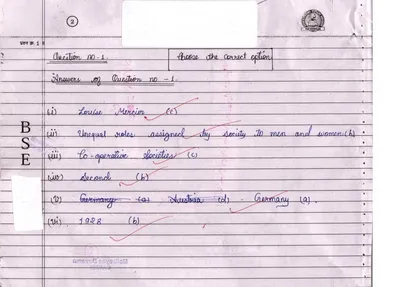 2
प्रश्न क्र. 1
Question no - 1. Choose the correct option
Answers of Question no - 1.
(i) Louise Mercior (c)
(ii) Unequal roles assigned by society to men and women (b)
(iii) Co-operative Societies (c)
(iv) Second (b)
(v) Germany (a) Austria (d) Germany (a).
(vi) 1928 (b)
B
S
E